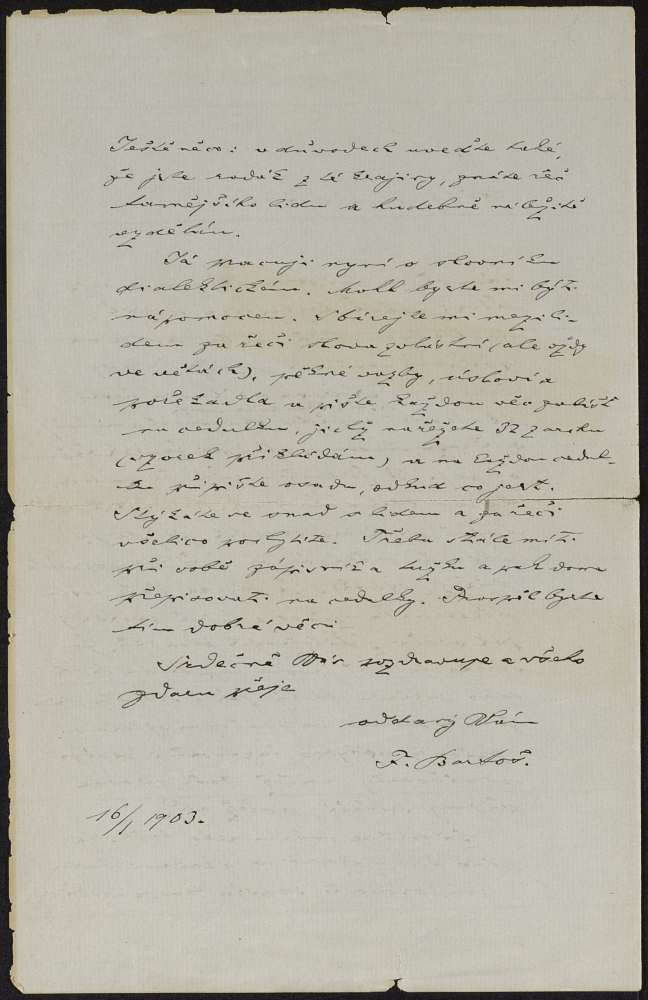 Ještě něco: v důvodech uveďte také,
že jste rodák z té krajiny, znáte řeč
tamějšího lidu a hudebně náležitě
vzdělán.
Já pracuji nyní o slovníku
dialektickém. Mohl byste mi býti
nápomocen. Sbírejte mi mezi li-
dem za řeči slova zvláštní (ale vždy
ve větách), pěkné vazby, úsloví a
pořekadla a pište každou věc zvlášť
na cedulku, jichž nařežete 32 z archu
(vzorek přikládám) a na každou cedul-
ku připište osadu, odkud co jest.
Stýkáte se snad s lidem a za řeči
všelico poslyšíte. Třeba stále míti
při sobě zápisník a tužku a pak doma
přepisovati na cedulky. Prospěl byste
tím dobré věci.
Srdečně Vás pozdravuje a všeho
zdaru přeje
oddaný Vám
F. Bartoš.
16/1 1903.